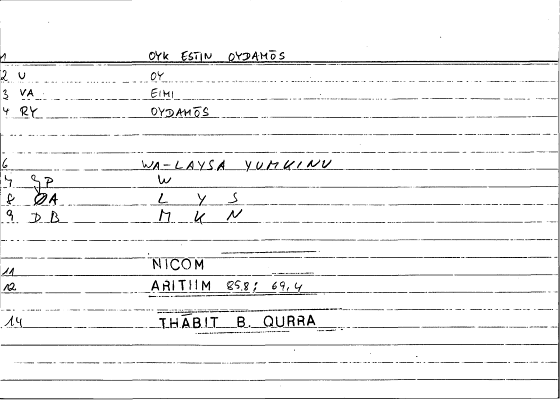 1 OYK ESTIN OYDAMŌS
2 U OY
3 VA EIMI
4 RY OYDAMŌS
6 WA-LAYSA YUMKINU
7 GP W
8 ØA L Y S
9 DB M K N
11 NICOM
12 ARITIIM 85.8; 69.4
14 THĀBIT B. QURRA